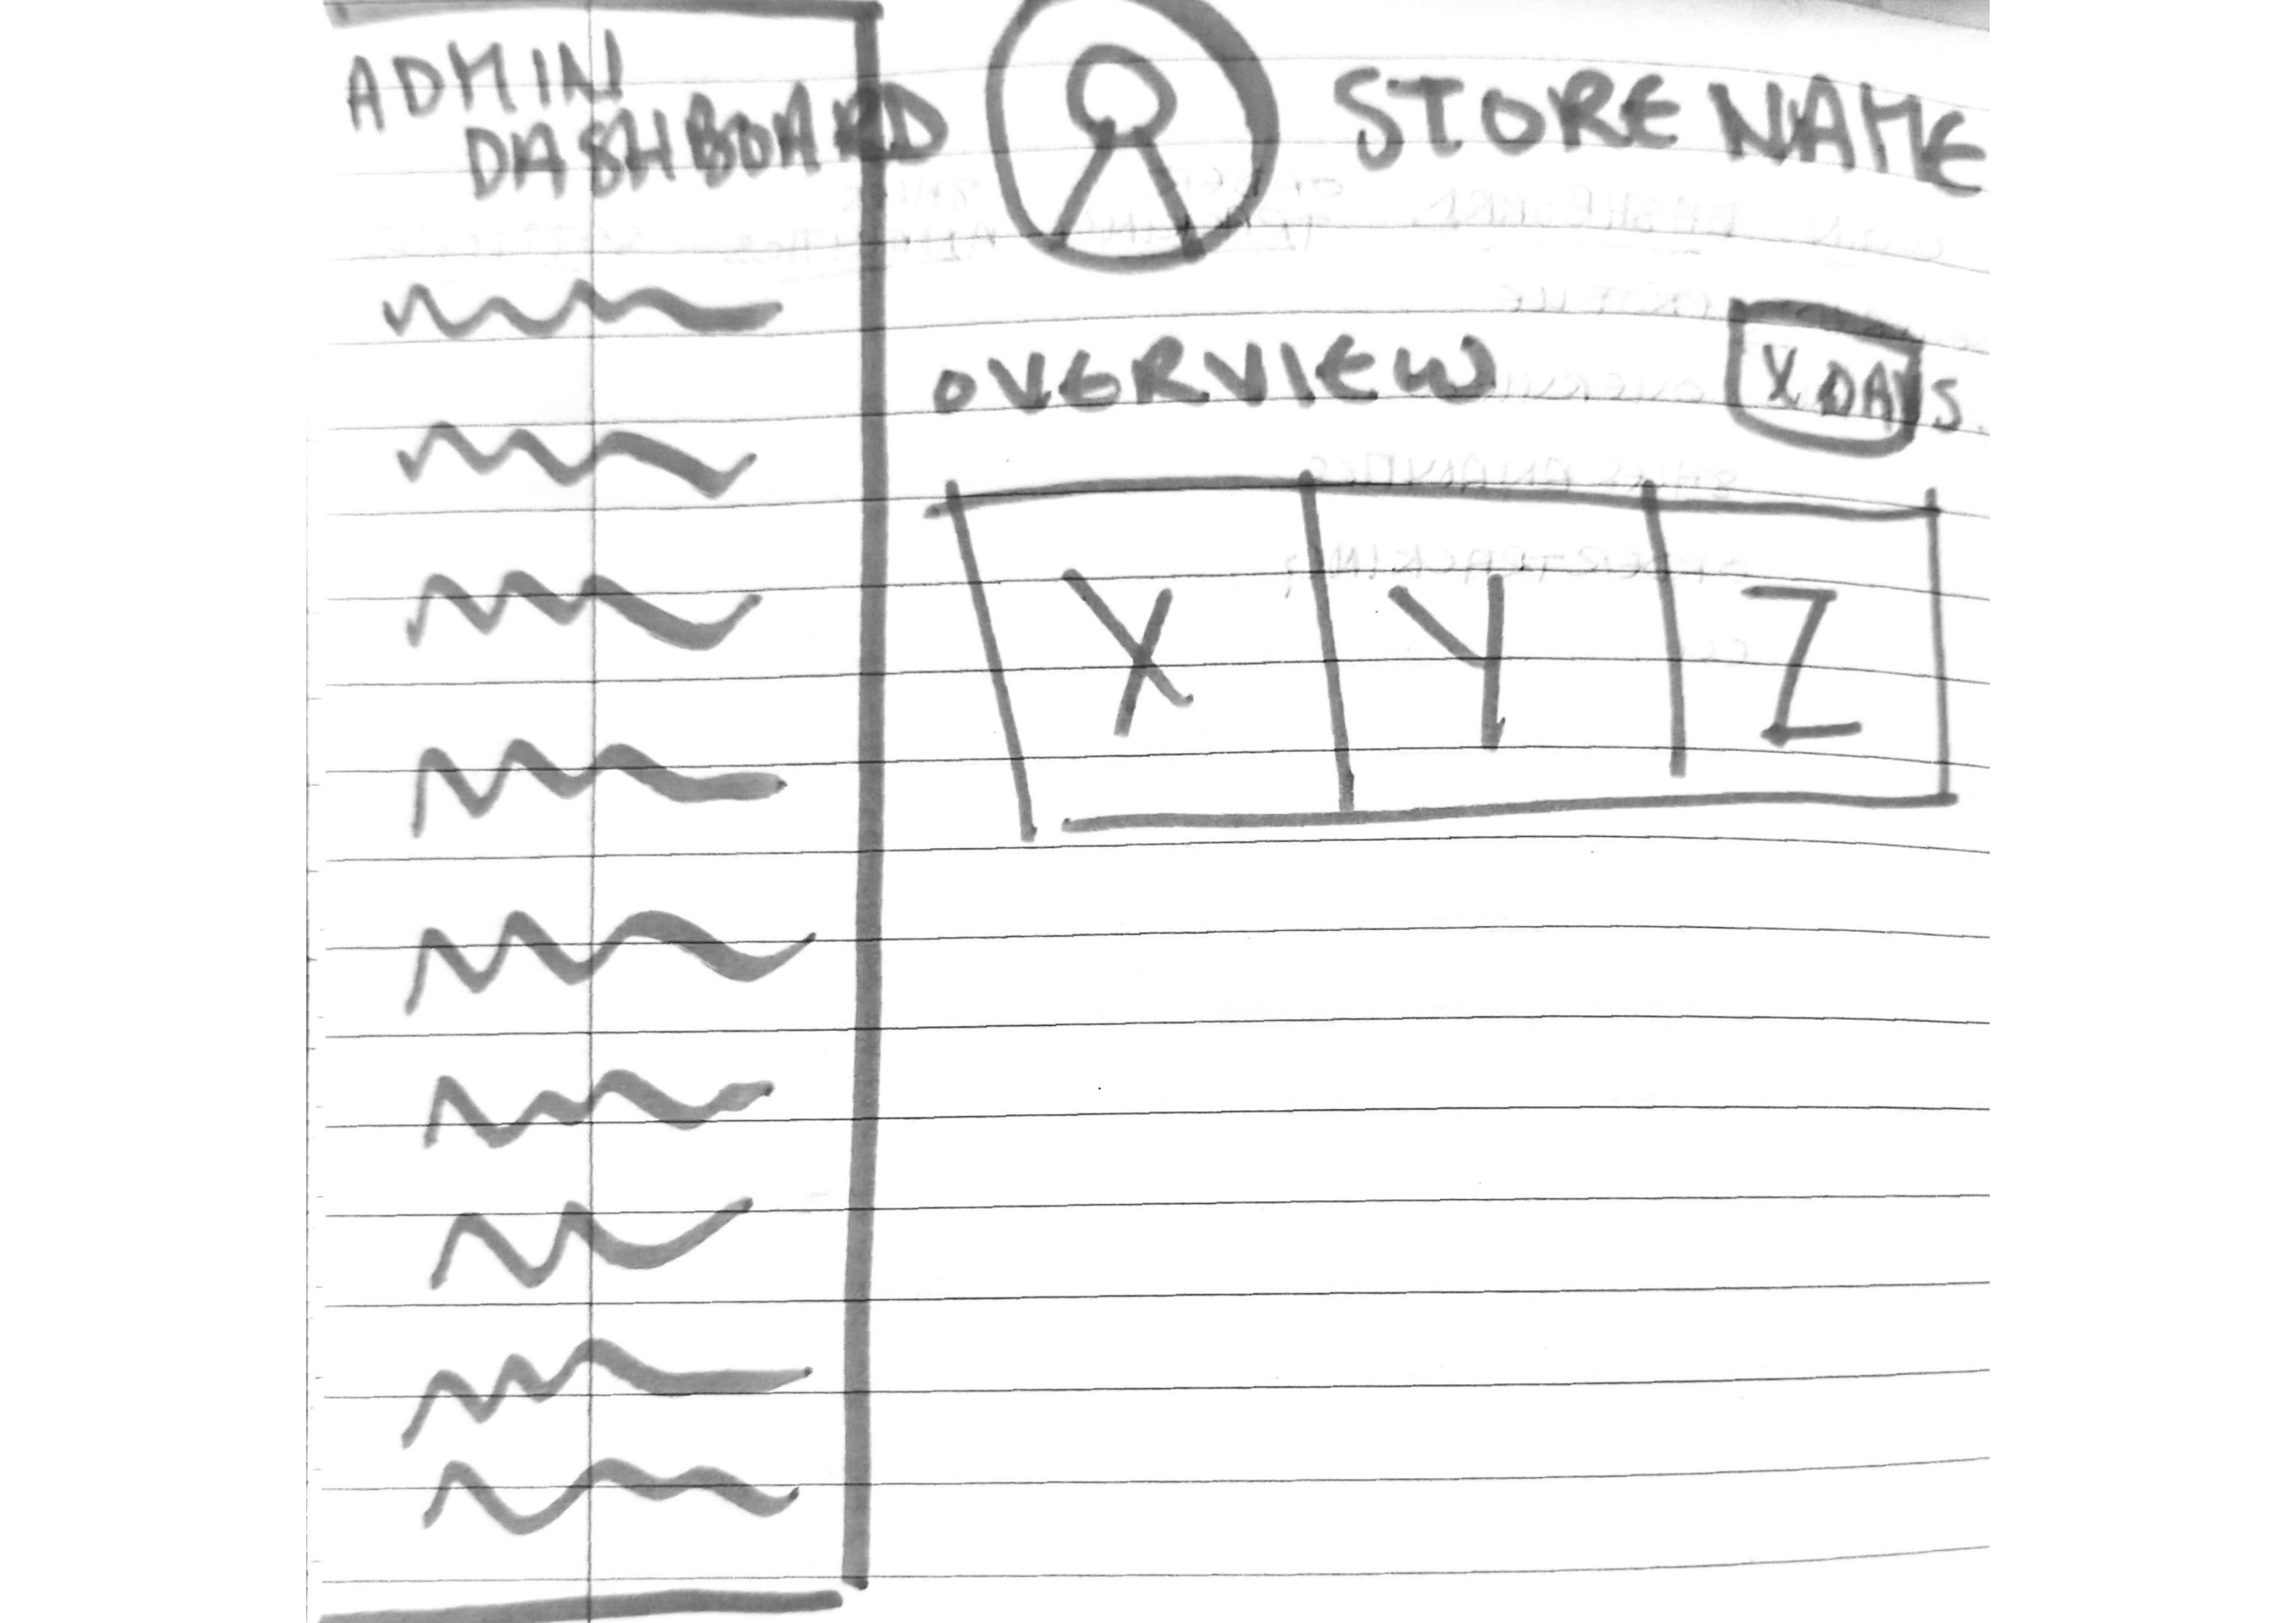 ADMIN
DASHBOARD
STORE NAME
OVERVIEW
X DAYS
X Y Z